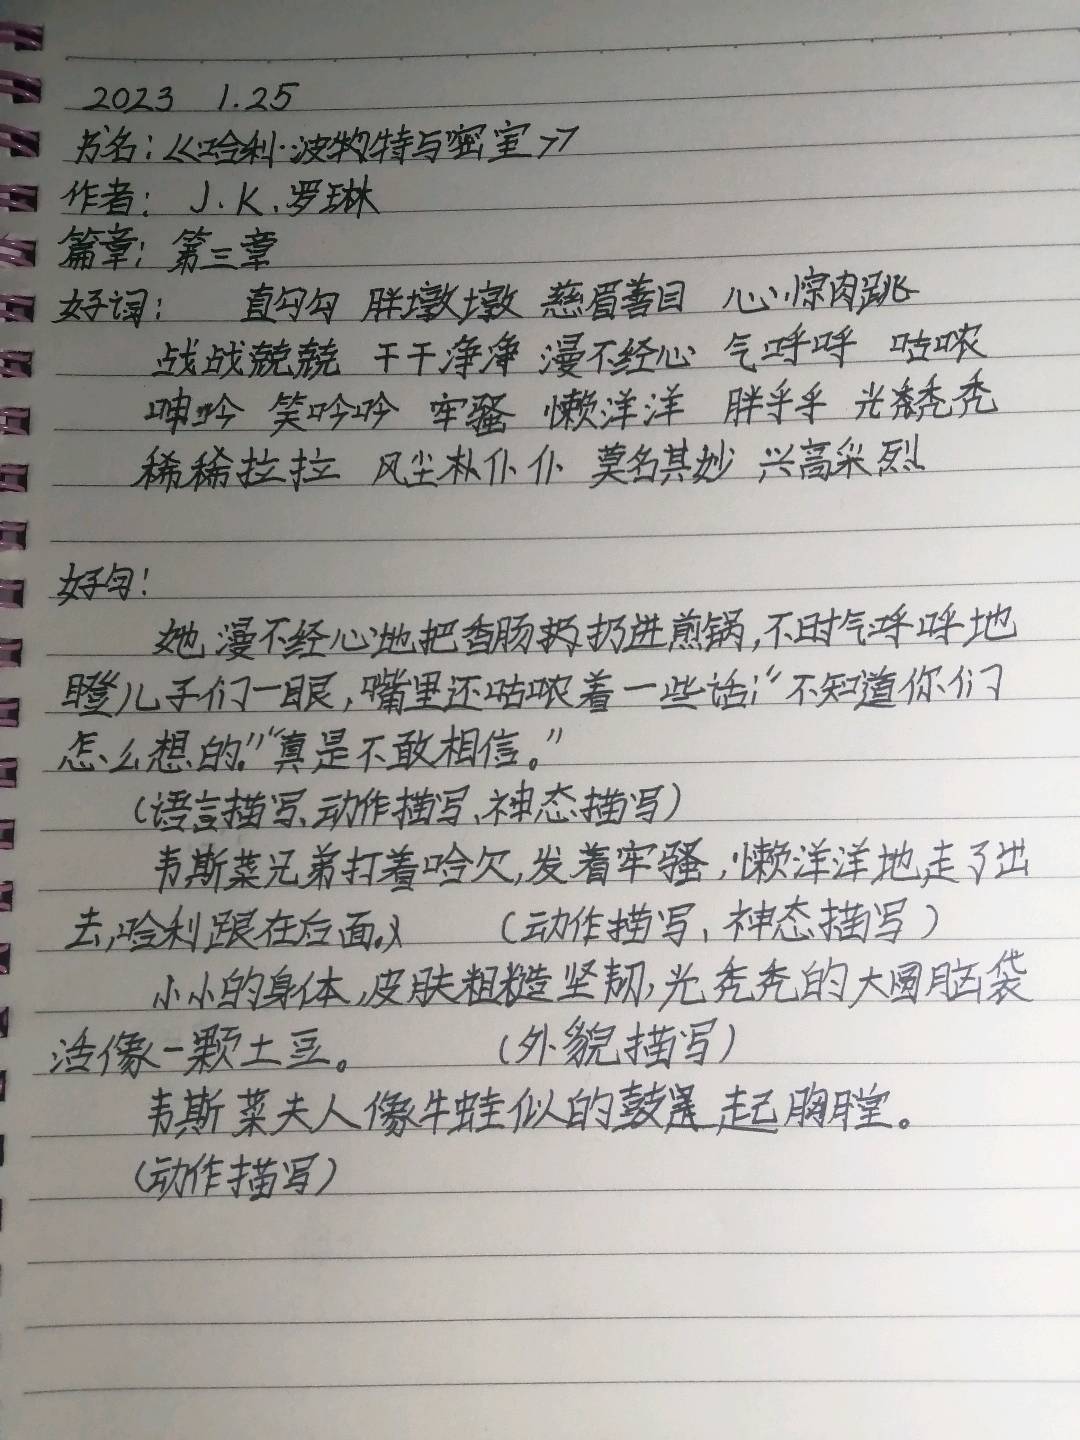 2023 1.25
书名:《哈利·波特与密室》
作者: J.K.罗琳
篇章: 第三章
好词: 直勾勾 胖墩墩 慈眉善目 心惊肉跳
战战兢兢 干干净净 漫不经心 气呼呼 咕哝
呻吟 笑吟吟 牢骚 懒洋洋 胖乎乎 光秃秃
稀稀拉拉 风尘朴仆仆 莫名其妙 兴高采烈
好句:
她漫不经心地把香肠扔进煎锅,不时气呼呼地
瞪儿子们一眼,嘴里还咕哝着一些话:“不知道你们
怎么想的。”“真是不敢相信。”
(语言描写、动作描写、神态描写)
韦斯莱兄弟打着哈欠,发着牢骚,懒洋洋地走了出
去,哈利跟在后面。 (动作描写、神态描写)
小小的身体,皮肤粗糙坚韧,光秃秃的大圆脑袋
活像一颗土豆。 (外貌描写)
韦斯莱夫人像牛蛙似的鼓起胸膛。
(动作描写)